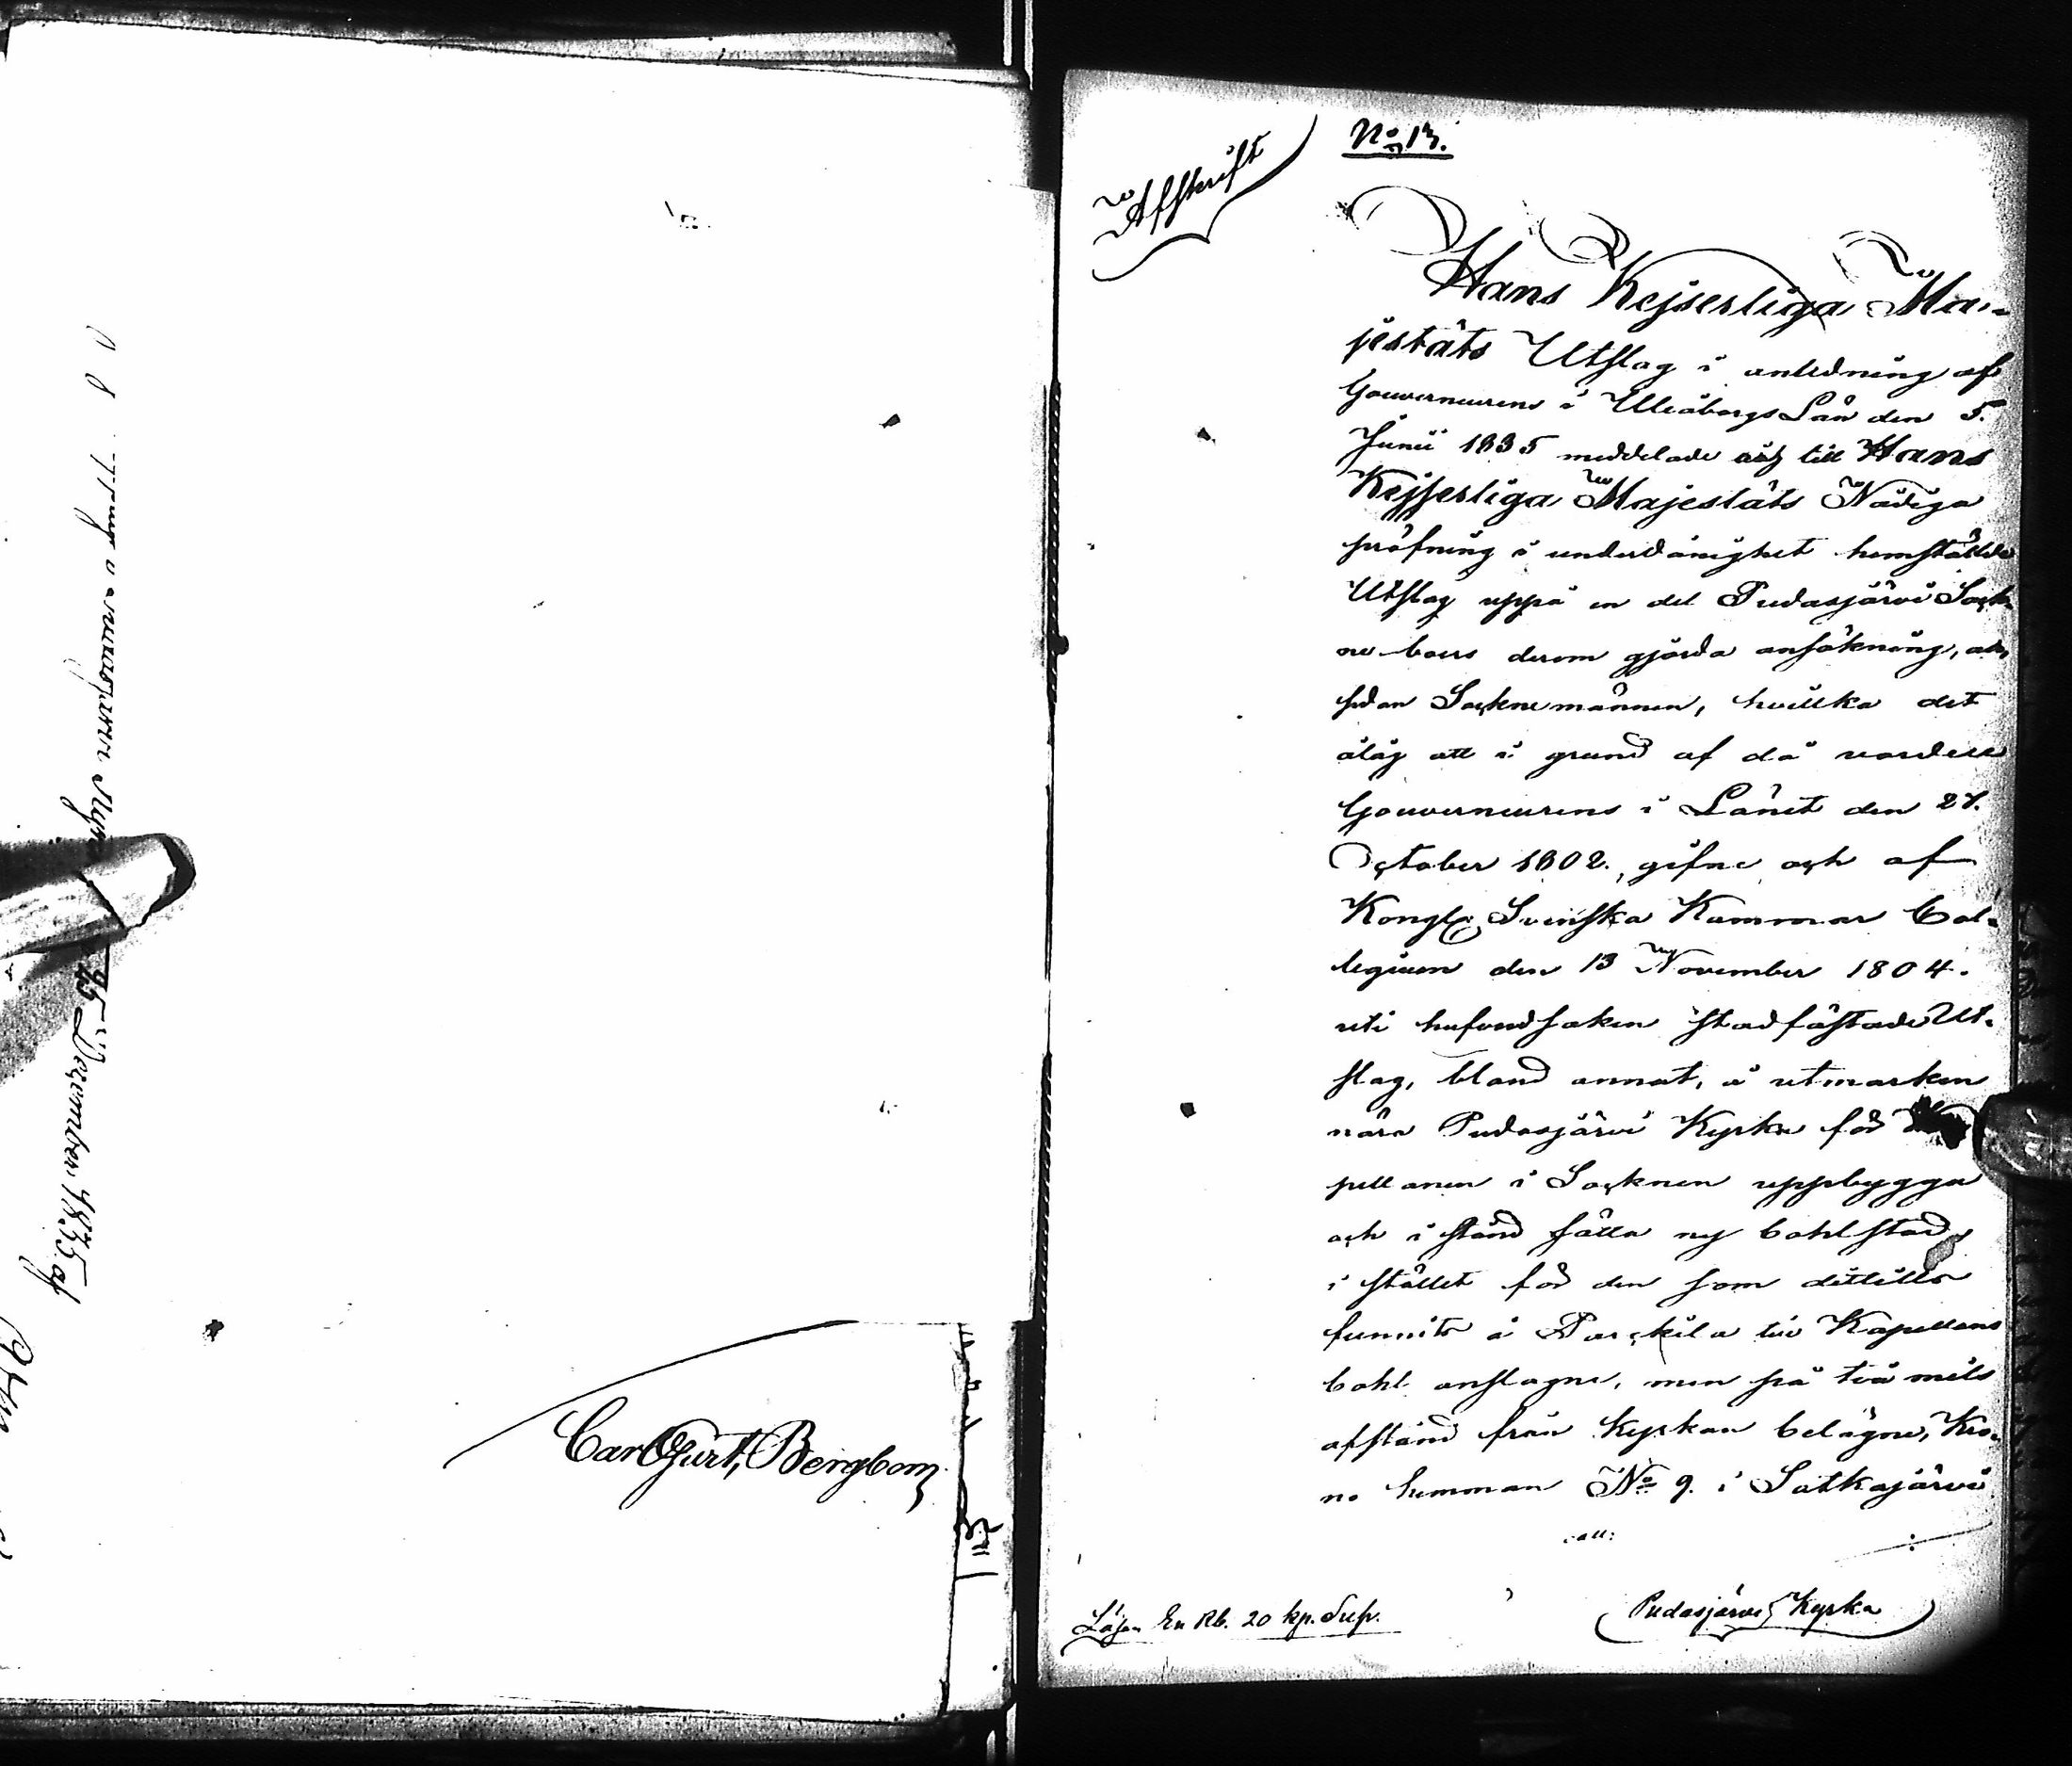 25 December 1835 af
Carl Gust. Bergbom
No 13.
Afskrift
Hans Kejserliga Ma-
jestäts Utslag i anledning af
Gouverneurens i Uleåborgs Län den 5.
Junii 1835 meddelade och till Hans
Kejserliga Majestäts Nådiga
pröfning i underdånighet hemstälde
Utslag uppå en del Pudasjärvi Sock-
ne boers derom gjorda ansökning, att,
sedan Socknemännen, hvilka det
ålåg att i grund af då varden
Gouverneurens i Länet den 27.
October 1802., gifne och af
Kongl. Svenska Kammar Col-
legium den 13 November 1804.
uti hufvudsaken stadfästade Ut-
slag, bland annat, å utmarken
nära Pudasjärvi Kyrka för
pellanen i Socknen uppbygga
och i stånd sätta ny bohlstad,
i stället för den som dittills
funnits å Parckila till Kapellans
bohl anslagne, men på två mils
afstånd från Kyrkan belägne, Kro-
no hemman No 9. i Sotkajärvi
att
Lösen En Rb. 20 kp. Silfv.
Pudasjärvi Kyrka